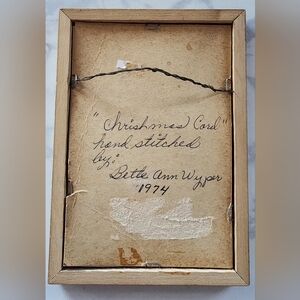 "Christmas Card"
hand stitched
by:
Bette Ann Wyper
1974